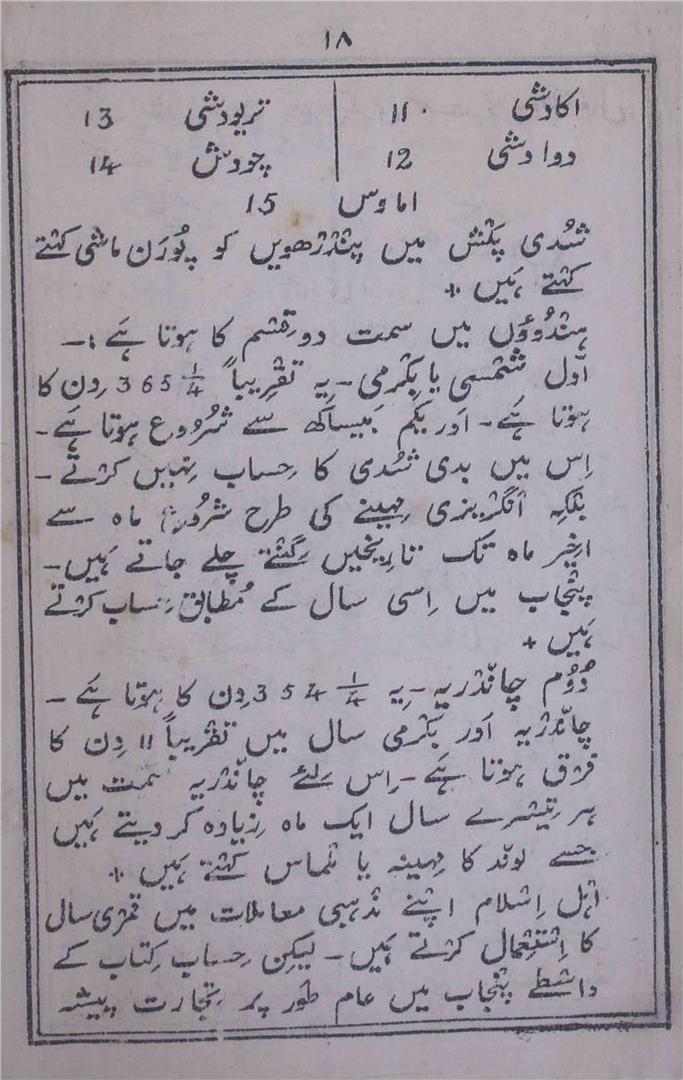 ۱۸
اکادشی 11 تریودشی 13
دوادشی 12 چودش 14
اماوس 15
شُدی پکش میں پندرھویں کو پُورَن ماشی کہتے
کہتے ہَیں +
ہندُوؤں میں سمت دو قِسم کا ہوتا ہَے :۔
اوّل شمسی یا بِکرمی ۔ یہ تقریباً ¼ 365 دِن کا
ہوتا ہَے ۔ اَور یکم بَیساکھ سے شرُوع ہوتا ہَے ۔
اِس میں بدی شُدی کا حِساب نہیں کرتے ۔
بلکہ انگریزی مہینے کی طرح شرُوع ماہ سے
اخیر ماہ تک تاریخیں گِنتے چلے جاتے ہَیں ۔
پنجاب میں اِسی سال کے مُطابق حِساب کرتے
ہَیں +
دُوُم چاندریہ ۔ یہ ¼ 354 دِن کا ہوتا ہَے ۔
چاندریہ اَور بکرمی سال میں تقریباً 11 دِن کا
فرق ہوتا ہَے ۔ اِس لئے چاندریہ سمت میں
ہر تیسرے سال ایک ماہ زیادہ کر دیتے ہَیں
جسے لوند کا مہینہ یا ملماس کہتے ہَیں +
اہل اِسلام اپنے مذہبی معاملات میں قمری سال
کا اِستعمال کرتے ہَیں ۔ لیکن حِساب کِتاب کے
واسطے پنجاب میں عام طَور پر تِجارت پیشہ